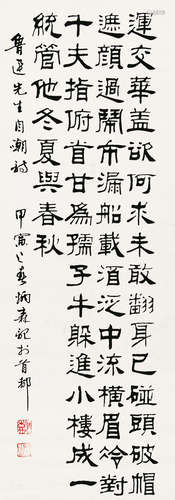 運交華盖欲何求未敢翻身已碰頭破帽
遮顔過鬧市漏船載酒泛中流橫眉冷對
千夫指俯首甘爲孺子牛躲進小樓成一
統管他冬夏與春秋
魯迅先生自嘲詩 甲寅之春炳森於首都